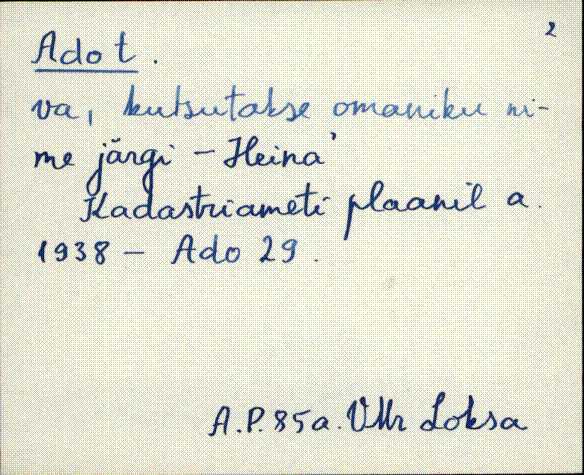 2
Ado t.
va, kutsutakse omaniku ni-
me järgi – Heina'
Kadastriameti plaanil a.
1938 – Ado 29.
A.P. 85a. VMr Loksa